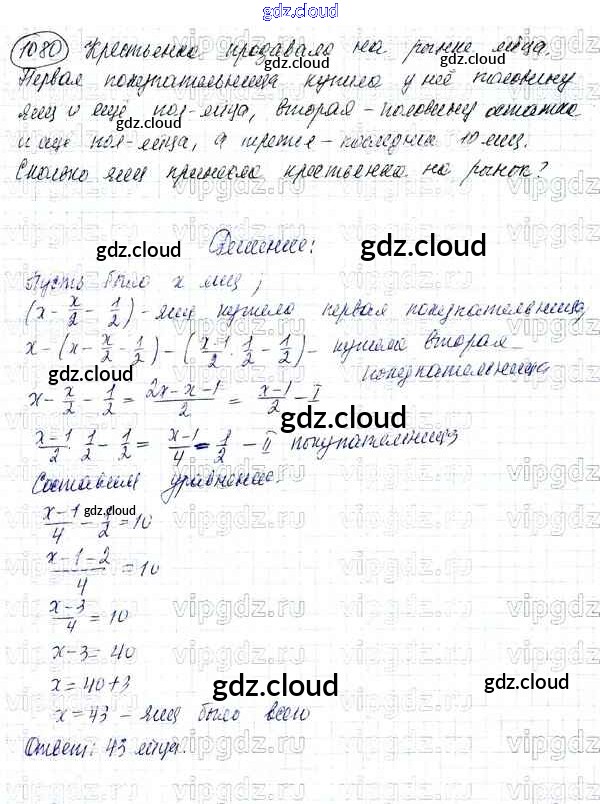 gdz.cloud
1080 Крестьянка продавала на рынке яйца.
gdz.cloud
Первая покупательница купила у неё половину
яиц и ещё пол-яйца, вторая – половину остатка
gdz.cloud
и ещё пол-яйца, а третья – последние 10 яиц.
Сколько яиц принесла крестьянка на рынок?
Решение:
gdz.cloud gdz.cloud
Пусть было x яиц;
(x - x/2 - 1/2) - яиц купила первая покупательница,
x - (x - x/2 - 1/2) - (x-1/2 · 1/2 - 1/2) - купила вторая
покупательница
gdz.cloud
x - x/2 - 1/2 = 2x-x-1/2 = x-1/2 - I
gdz.cloud
x-1/2 · 1/2 - 1/2 = x-1/4 - 1/2 - II покупательница
Составим уравнение.
x-1/4 - 1/2 = 10
gdz.cloud
x-1-2/4 = 10
x-3/4 = 10
x-3 = 40
x = 40+3
gdz.cloud gdz.cloud
x = 43 - яиц было всего
Ответ: 43 яйца.
gdz.cloud
vipgdz.ru